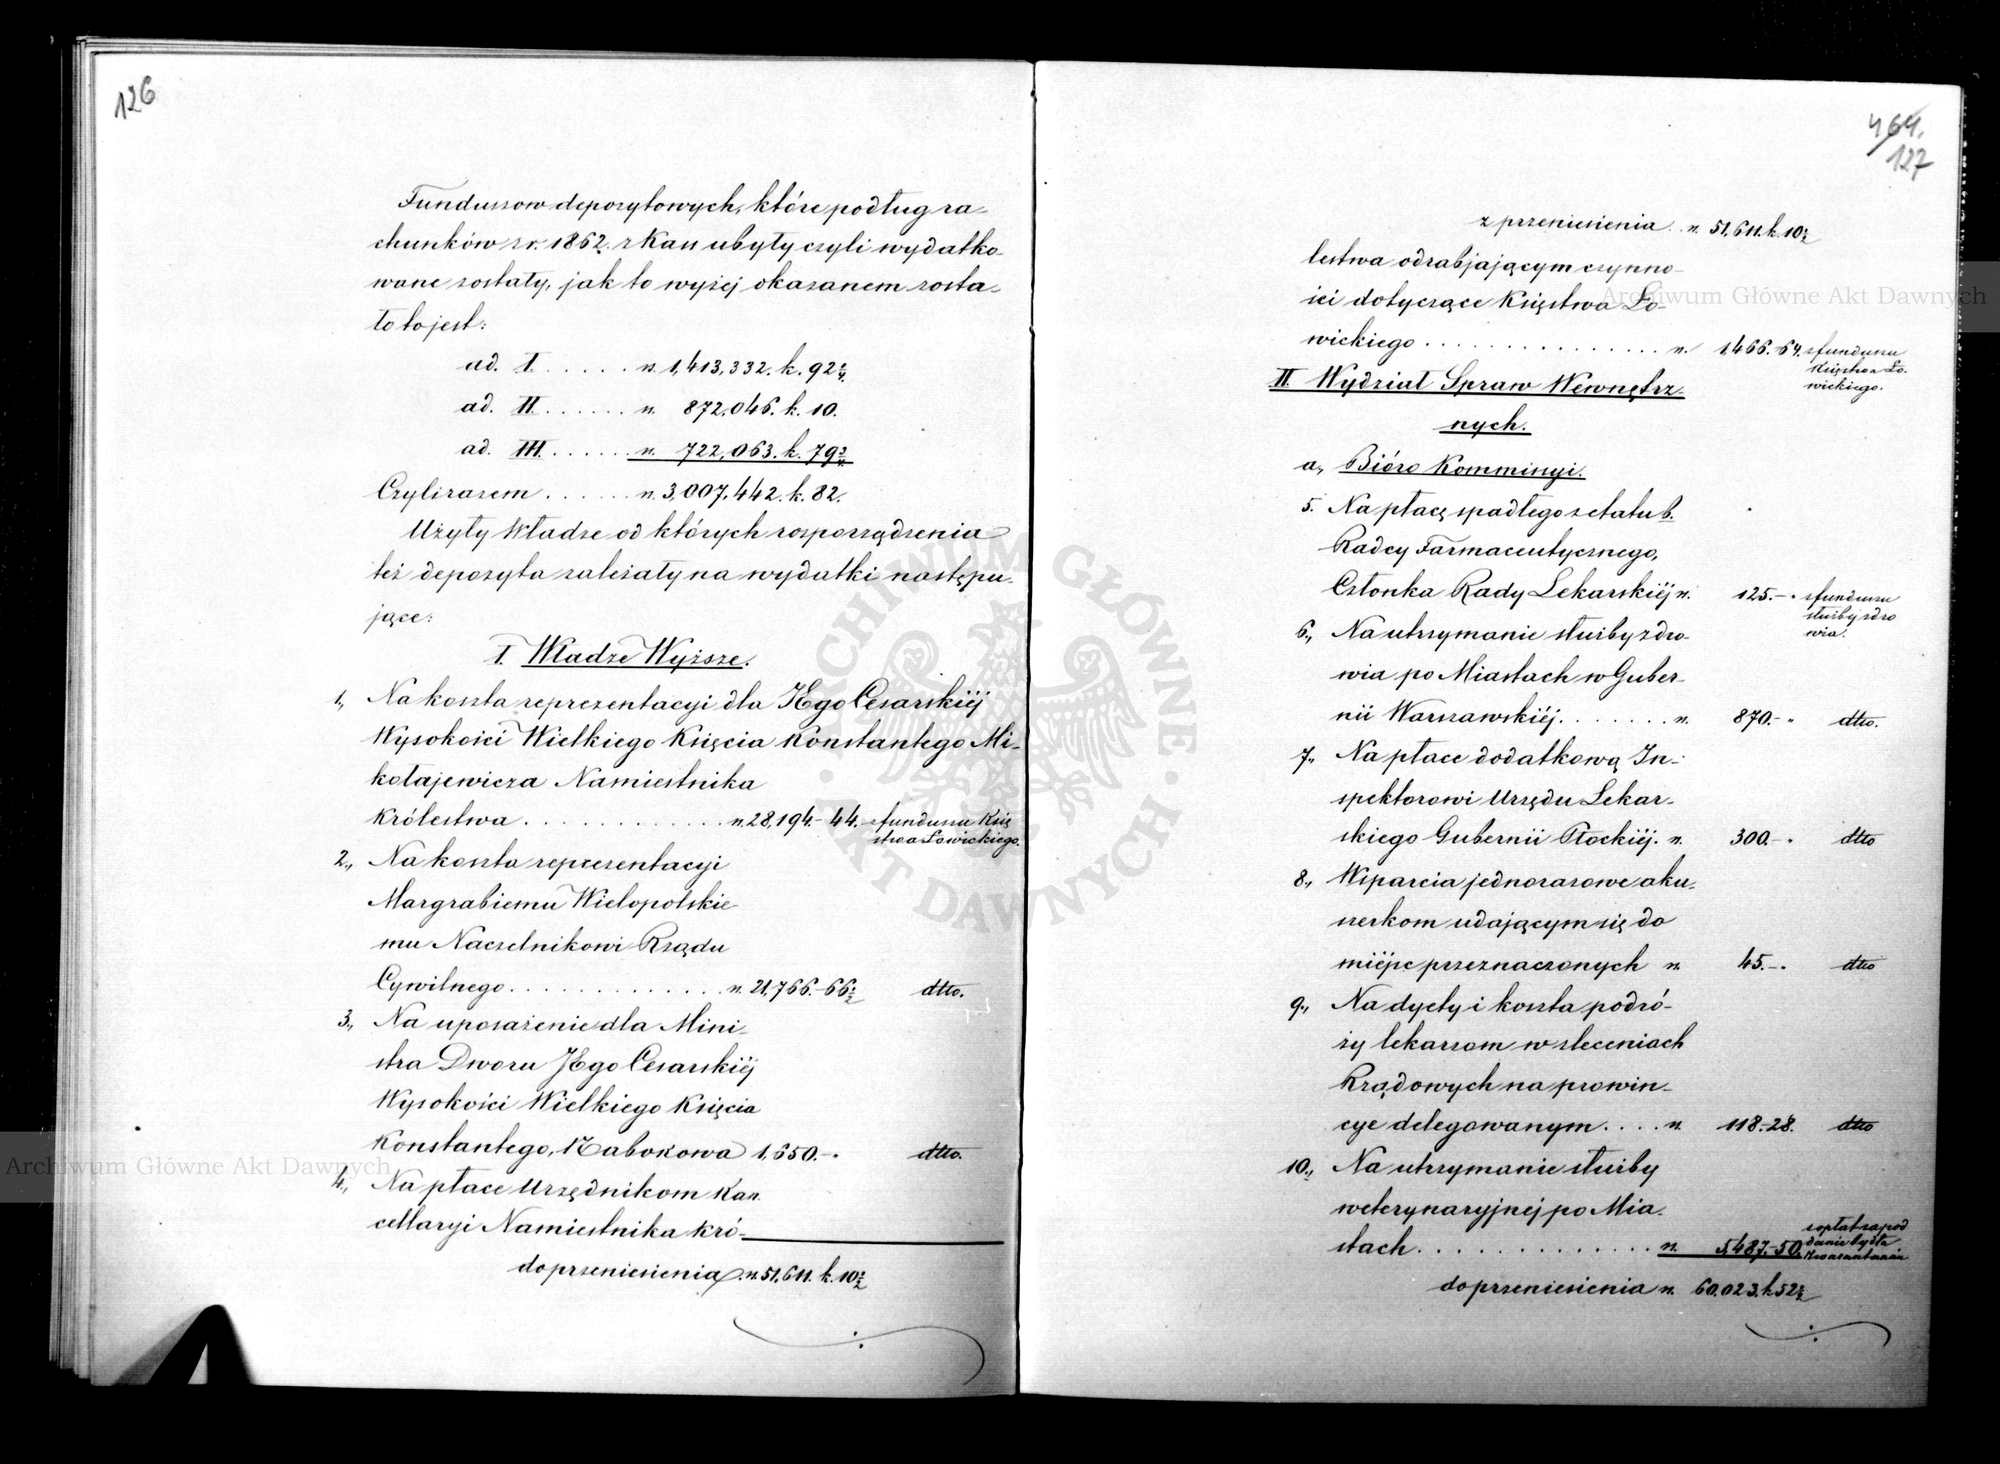 126
Funduszow depozytowych, które podług ra-
chunków z r. 1862. z Kass ubyły czyli wydatko-
wane zostały, jak to wyżej okazanem zosta-
ło to jest:
ad. I. . . . . . rs. 1,413,332. k. 92 2/4.
ad. II. . . . . . rs. 872,046. k. 10.
ad. III. . . . . . rs. 722,063. k. 79 2/4
Czyli razem . . . . . . rs. 3,007,442. k. 82.
Użyły Władze od których rozporządzenia
też depozyta zależały na wydatki następu-
jące:
I. Władze Wyższe.
1., Na koszta reprezentacyi dla JEgo Cesarskiéj
Wysokości Wielkiego Księcia Konstantego Mi-
kołajewicza Namiestnika
Królestwa . . . . . . . . . . . . rs. 28,194.-44. z funduszu Księ
stwa Łowickiego.
2., Na koszta reprezentacyi
Margrabiemu Wielopolskie-
mu Naczelnikowi Rządu
Cywilnego . . . . . . . . . . . . . rs. 21,766.-66 1/2 dtto.
3., Na uposażenie dla Mini-
stra Dworu JEgo Cesarskiéj
Wysokości Wielkiego Księcia
Konstantego, Nabokowa 1,650.-. dtto.
4., Na płace Urzędnikom Kan
cellaryi Namiestnika Kró-
do przeniesienia rs. 51,611. k. 10 1/2
464.
127
z przeniesienia . . rs. 51,611. k. 10 1/2
lestwa odrabjającym czynno-
ści dotyczące Księstwa Ło-
wickiego . . . . . . . . . . . . . . . rs. 1,466.-64. z funduszu
Księstwa Ło-
wickiego.
II. Wydział Spraw Wewnętrz-
nych.
a., Bióro Kommissyi.
5. Na płacę spadłego z etatu b.
Radcy Farmaceutycznego,
Członka Rady Lekarskiéj rs. 125.-. z funduszu
służby zdro
wia.
6., Na utrzymanie służby zdro-
wia po Miastach w Guber-
nii Warszawskiéj . . . . . . . rs. 870.-. dtto.
7., Na płace dodatkową In-
spektorowi Urzędu Lekar-
skiego Gubernii Płockiéj. rs. 300.-. dtto
8., Wsparcia jednorazowe aku-
szerkom udającym się do
miéjsc przeznaczonych rs. 45.-. dtto
9., Na dyety i koszta podró-
ży lekarzom w zleceniach
Rządowych na prowin-
cye delegowanym . . . . rs. 118.-28. dtto
10., Na utrzymanie służby
weterynaryjnej po Mia-
stach . . . . . . . . . . . . . rs. 5,487.-50. z opłat za pod
danie bydła
Kwarantannie
do przeniesienia rs. 60,023. k. 52 1/2
Archiwum Główne Akt Dawnych
Archiwum Główne Akt Dawnych
ARCHIWUM GŁÓWNE
AKT DAWNYCH